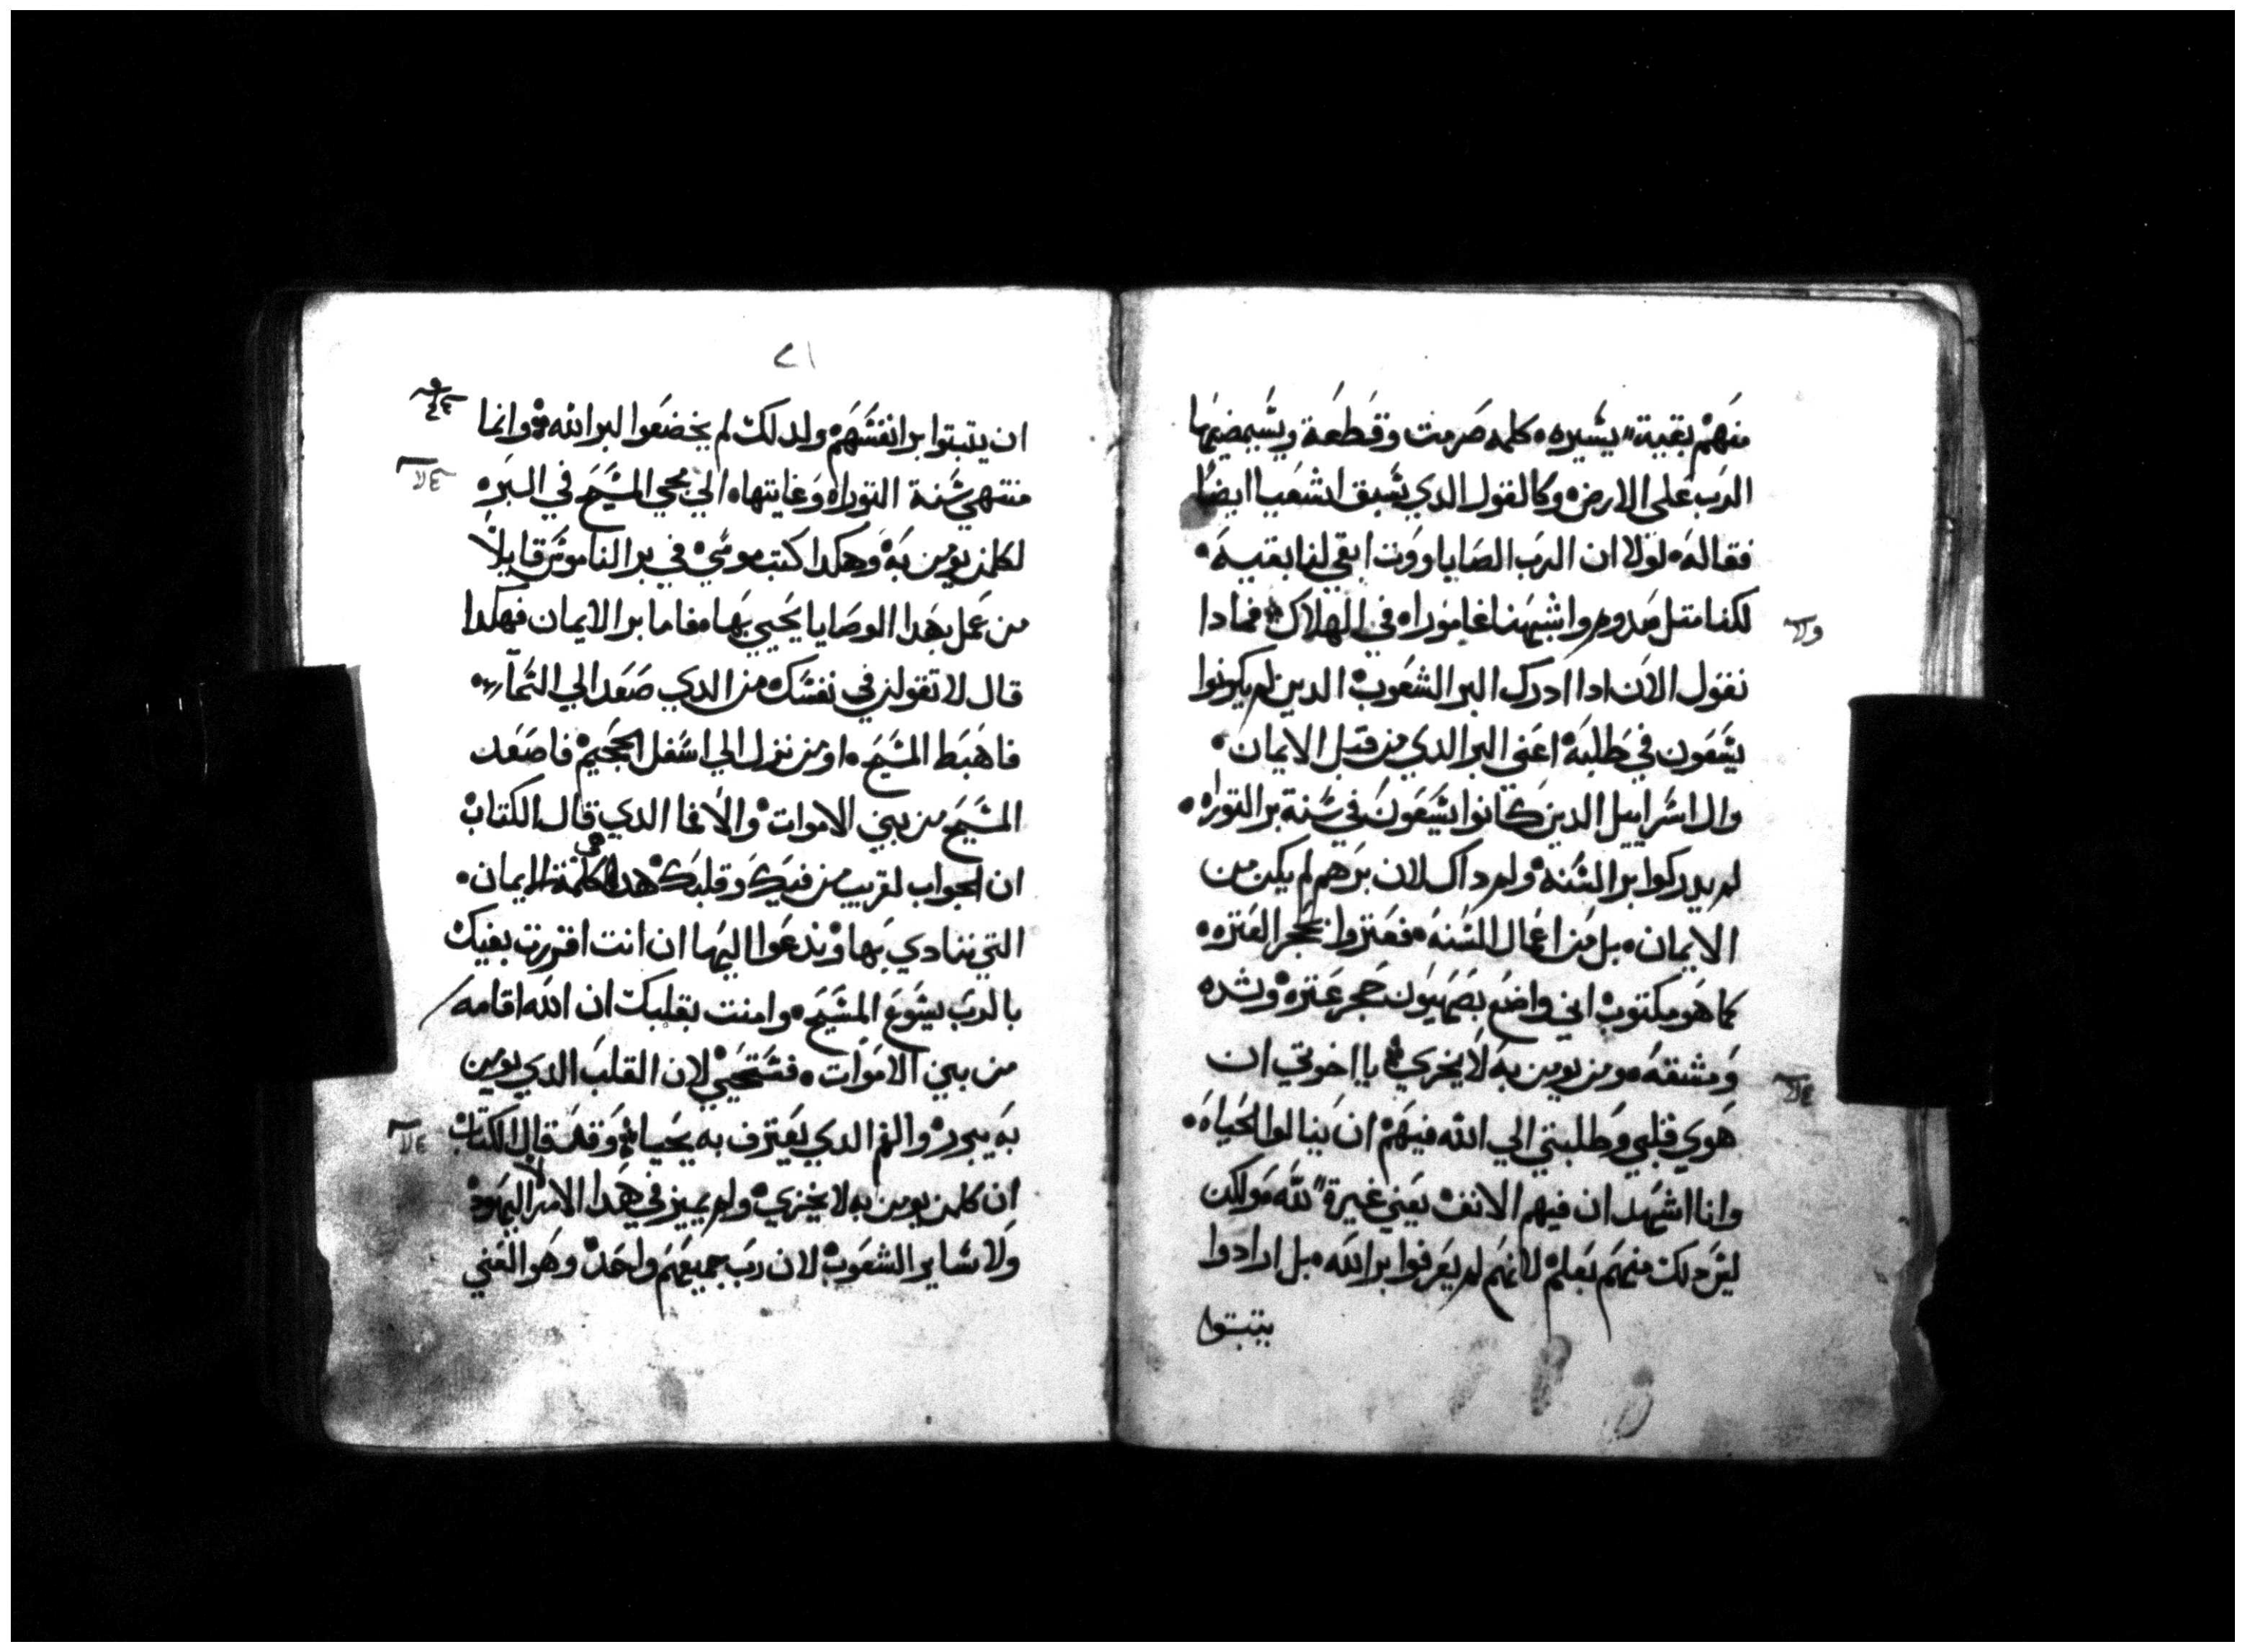 منهم بقية يسيره كلمه صرمت وقطعة وسيمضيها
الرب على الارض وكالقول الدي سبق اشعيا ايضا
فقاله لولا ان الرب الصاباووت ابقي لنا بقيه
لكنا متل سدوم واشبهنا غاموراه في الهلاك فمادا
نقول الان ادا ادرك البر الشعوب الدين لم يكونوا
يسعون في طلبه اعني البر الدي من قبل الايمان
وال اسراييل الدين كانوا يسعون في سنة بر التوراه
لم يدركوا بر السنه ولم داك لان برهم لم يكن من
الايمان بل من اعمال السنه فعتروا بحجر العتره
كما هو مكتوب اني واضع بصهيون حجر عتره وشده
ومن يومن به لا يخزي يا اخوتي ان
هوي قلبي وطلبتي الي الله فيهم ان ينالوا الحياه
وانا اشهد ان فيهم يعني غيرة لله ولكن
ليس دلك منهم بعلم لانهم لم يعرفوا بر الله بل ارادوا
يتبتوا
٧١
ان يتبتوا بر انفسهم ولدلك لم يخضعوا لبر الله وانما
منتهي سنة التوراه وغايتها الي مجي المسيح في البره
لكلمن يومن به وهكدا كتب موسي في بر الناموس قايلا
من عمل بهدا الوصايا يحيي بها فاما بر الايمان فهكدا
قال لا تقولن في نفسك من الدي صعد الي السماء
فاهبط المسيح او من نزل الي اسفل الجحيم فاصعد
المسيح من بين الاموات والا فما الدي قال الكتاب
ان الجواب لقريب من فيك وقلبك هده هي كلمة الايمان
التي ننادي بها وندعوا اليها ان انت اقررت بفيك
بالرب يسوع المسيح وامنت بقلبك ان الله اقامه
من بين الاموات فستحيي لان القلب الدي يومن
به يبرر والفم الدي يعترف به يحيا وقد قال الكتاب
ان كلمن يومن به لا يخزي ولم يميز في هدا الامر اليهود
ولا ساير الشعوب لان رب جميعهم واحد وهو الغني